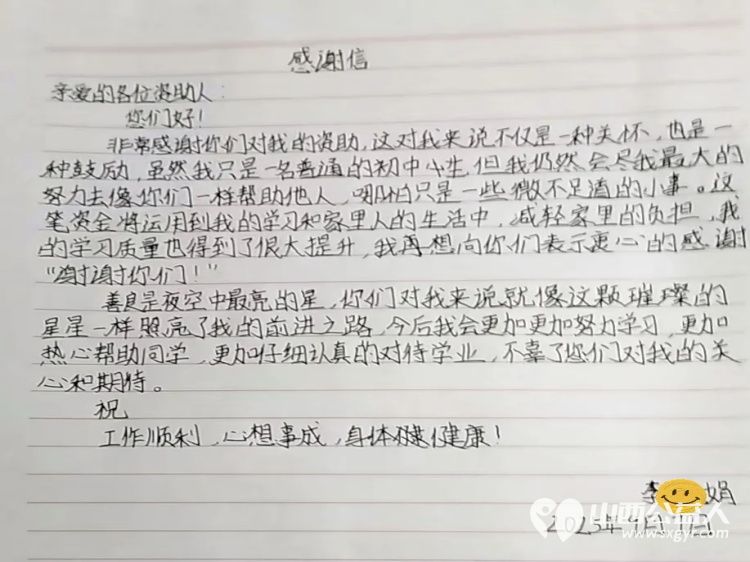 感谢信
亲爱的各位资助人:
您们好!
非常感谢你们对我的资助,这对我来说不仅是一种关怀,也是一
种鼓励,虽然我只是一名普通的初中小生,但我仍然会尽我最大的
努力去像你们一样帮助他人,哪怕只是一些微不足道的小事。这
笔资金将运用到我的学习和家里人的生活中,减轻家里的负担,我
的学习质量也得到了很大提升,我再想向你们表示衷心的感谢
“谢谢你们!”
善良是夜空中最亮的星,你们对我来说就像这颗璀璨的
星星一样照亮了我的前进之路,今后我会更加更加努力学习,更加
热心帮助同学,更加仔细认真的对待学业,不辜了您们对我的关
心和期待。
祝
工作顺利,心想事成,身体健健康!
李 娟
山西公益人
www.sxgyr.com